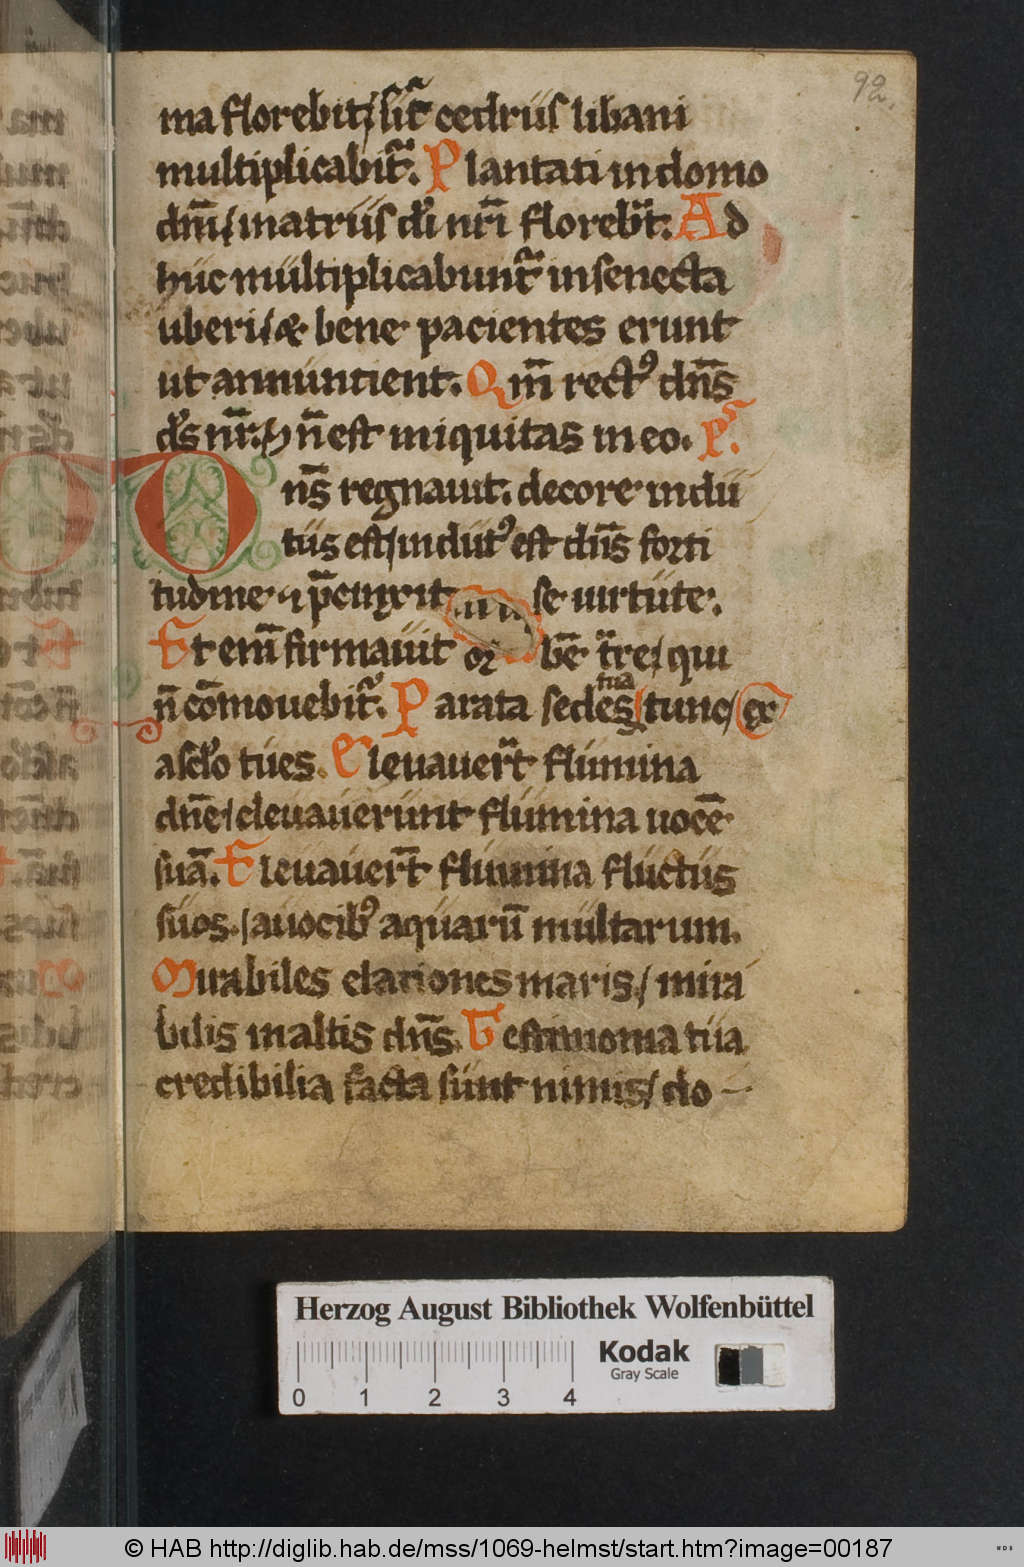 92.
ma florebit / sic̃ cedrus libani
multiplicabit᷑. Plantati in domo
dn̄i / in atriis di nr̄i florebt᷑. Ad
huc multiplicabunt᷑ in senecta
uberi / ⁊ bene pacientes erunt
ut annuntient. Qm̄ rectꝰ dn̄s
ds nr̄. ⁊ n̄ est iniquitas in eo. ps.
Dn̄s regnauit. decore indu
tus est / indutꝰ est dn̄s forti
tudine ⁊ p̄cinxit se uirtute.
Et eni̅ firmauit or be̅ t᷑re / qui
n̄ co̅mouebit᷑. Parata sedes tua / tunc / ex
asclo tu es. Eleuauer᷑t flumina
dn̄e / eleuauerunt flumina uoce̅
sua̅. Eleuauer̅t flumina fluctus
suos. / a uocibꝰ aquaru̅ multarum.
Mirabiles elationes maris. / mira
bilis in altis dn̄s. Testimonia tua
credibilia facta sunt nimis / do
Herzog August Bibliothek Wolfenbüttel
Kodak
Gray Scale
0 1 2 3 4
© HAB http://diglib.hab.de/mss/1069-helmst/start.htm?image=00187